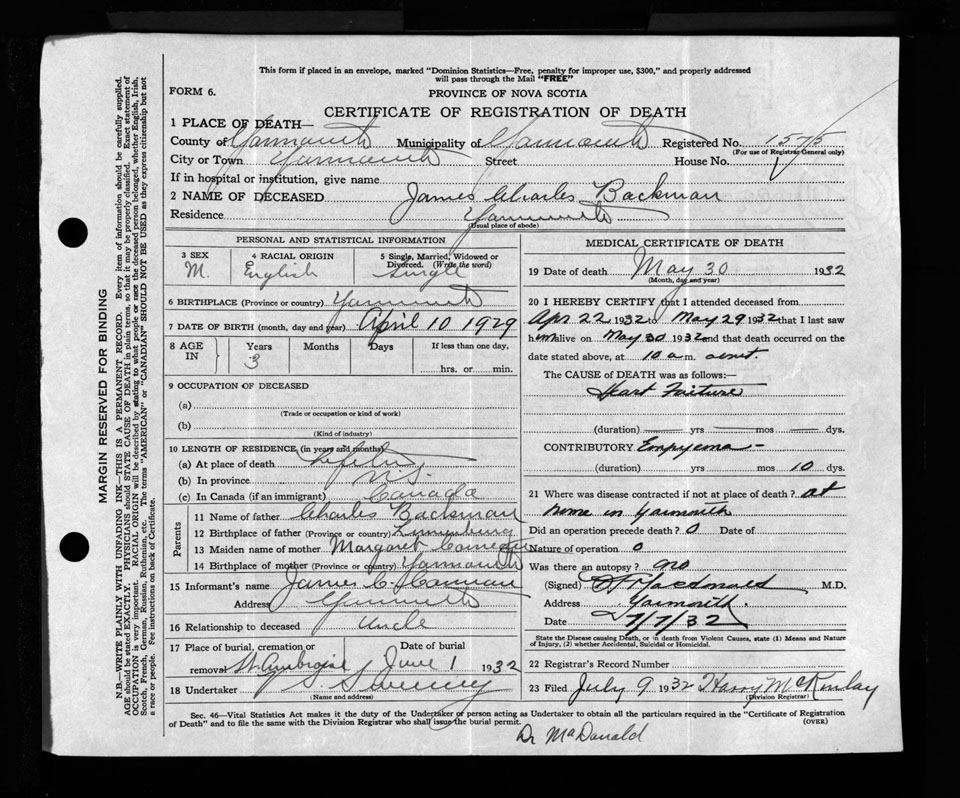 This form if placed in an envelope, marked "Dominion Statistics—Free, penalty for improper use, $300," and properly addressed
will pass through the Mail "FREE"
FORM 6.
PROVINCE OF NOVA SCOTIA
CERTIFICATE OF REGISTRATION OF DEATH
1 PLACE OF DEATH—
County of Yarmouth Municipality of Yarmouth Registered No. 1575
(For use of Registrar General only)
City or Town Yarmouth Street House No.
If in hospital or institution, give name
2 NAME OF DECEASED James Charles Backman
Residence Yarmouth
(Usual place of abode)
PERSONAL AND STATISTICAL INFORMATION
3 SEX 4 RACIAL ORIGIN 5 Single, Married, Widowed or
Divorced. (Write the word)
M. English Single
6 BIRTHPLACE (Province or country) Yarmouth
7 DATE OF BIRTH (month, day and year) April 10 1929
8 AGE IN Years Months Days If less than one day,
3 hrs. or min.
9 OCCUPATION OF DECEASED
(a)
(Trade or occupation or kind of work)
(b)
(Kind of industry)
10 LENGTH OF RESIDENCE (in years and months)
(a) At place of death Lifetime
(b) In province N.S.
(c) In Canada (if an immigrant) Canada
Parents
11 Name of father Charles Backman
12 Birthplace of father (Province or country) Lunenburg
13 Maiden name of mother Margaret
14 Birthplace of mother (Province or country) Yarmouth
15 Informant's name James C.
Address Yarmouth
16 Relationship to deceased Uncle
17 Place of burial, cremation or Date of burial
removal St. Ambroise June 1 1932
18 Undertaker Sweeney
(Name and address)
MEDICAL CERTIFICATE OF DEATH
19 Date of death May 30 1932
(Month, day and year)
20 I HEREBY CERTIFY that I attended deceased from
Apr 22 1932 to May 29 1932 that I last saw
him alive on May 30 1932 and that death occurred on the
date stated above, at 10 a.m.
The CAUSE OF DEATH was as follows:
Heart Failure
(duration) — yrs — mos — dys.
CONTRIBUTORY Empyema —
(duration) yrs mos 10 dys.
21 Where was disease contracted if not at place of death? at
home in Yarmouth
Did an operation precede death? 0 Date of
Nature of operation 0
Was there an autopsy? no
(Signed) Macdonald M.D.
Address Yarmouth.
Date 7/7/32
State the Disease causing Death, or in death from Violent Causes, state (1) Means and Nature
of Injury, (2) whether Accidental, Suicidal or Homicidal.
22 Registrar's Record Number
23 Filed July 9 1932 Harry McKinlay
(Division Registrar)
Sec. 46—Vital Statistics Act makes it the duty of the Undertaker or person acting as Undertaker to obtain all the particulars required in the "Certificate of Registration
of Death" and to file the same with the Division Registrar who shall issue the burial permit.
(OVER)
Dr MacDonald
MARGIN RESERVED FOR BINDING
N.B.—WRITE PLAINLY WITH UNFADING INK—THIS IS A PERMANENT RECORD. Every item of information should be carefully supplied.
AGE should be stated EXACTLY. PHYSICIANS should STATE CAUSE OF DEATH in plain terms, so that it may be properly classified. Exact statement of
OCCUPATION is very important. RACIAL ORIGIN will be described by stating to what people or race the deceased person belonged, whether English, Irish,
Scotch, French, German, Russian, Ruthenian, etc. The terms "AMERICAN" or "CANADIAN" SHOULD NOT BE USED as they express citizenship but not
a race or people. See instructions on back of Certificate.